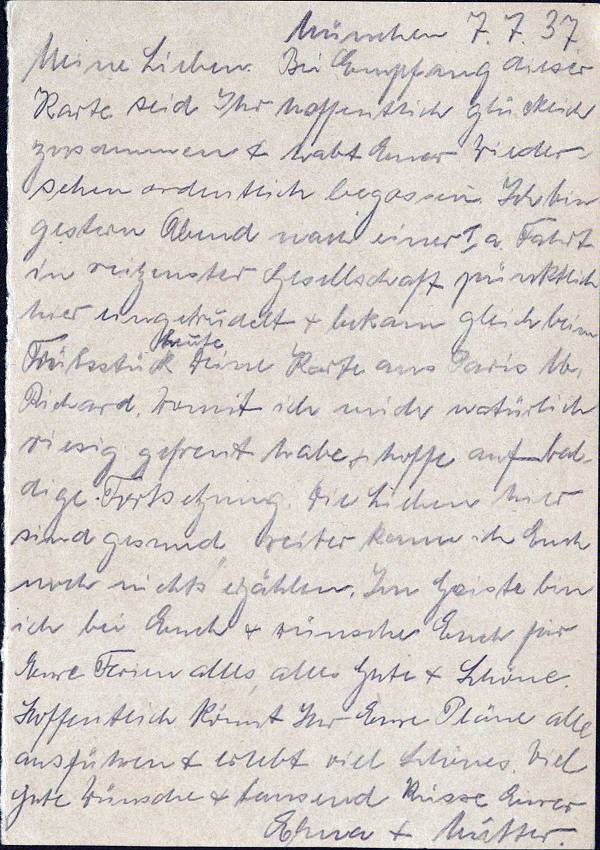 München 7.7.37
Meine Lieben. Bei Empfang dieser
Karte seid Ihr hoffentlich glücklich
zusammen & habt Euer Wieder-
sehen ordentlich begossen. Ich bin
gestern Abend nach einer I a Fahrt
in reizenster Gesellschaft pünktlich
hier eingetrudelt & bekam gleich beim
Frühstück heute Deine Karte aus Paris lb.
Richard, womit ich mich natürlich
riesig gefreut habe & hoffe auf bal-
dige Fortsetzung. Die Lieben hier
sind gesund, weiter kann ich Euch
noch nichts erzählen. Im Geiste bin
ich bei Euch & wünsche Euch für
Eure Ferien alles, alles Gute & Schöne.
Hoffentlich könnt Ihr Eure Pläne alle
ausführen & erlebt viel Schönes. Viel
gute Wünsche & tausend Küsse Eurer
& Mutter.